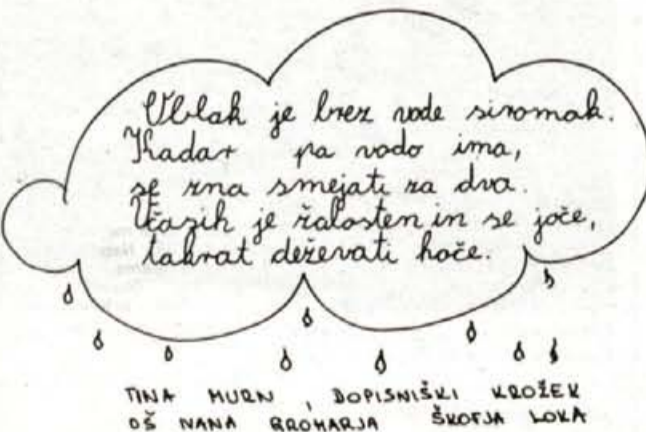 Oblak je brez vode siromak.
Kadar pa vodo ima,
se zna smejati za dva.
Včasih je žalosten in se joče,
takrat deževati hoče.
TINA MURN, DOPISNIŠKI KROŽEK
OŠ IVANA GROHARJA ŠKOFJA LOKA